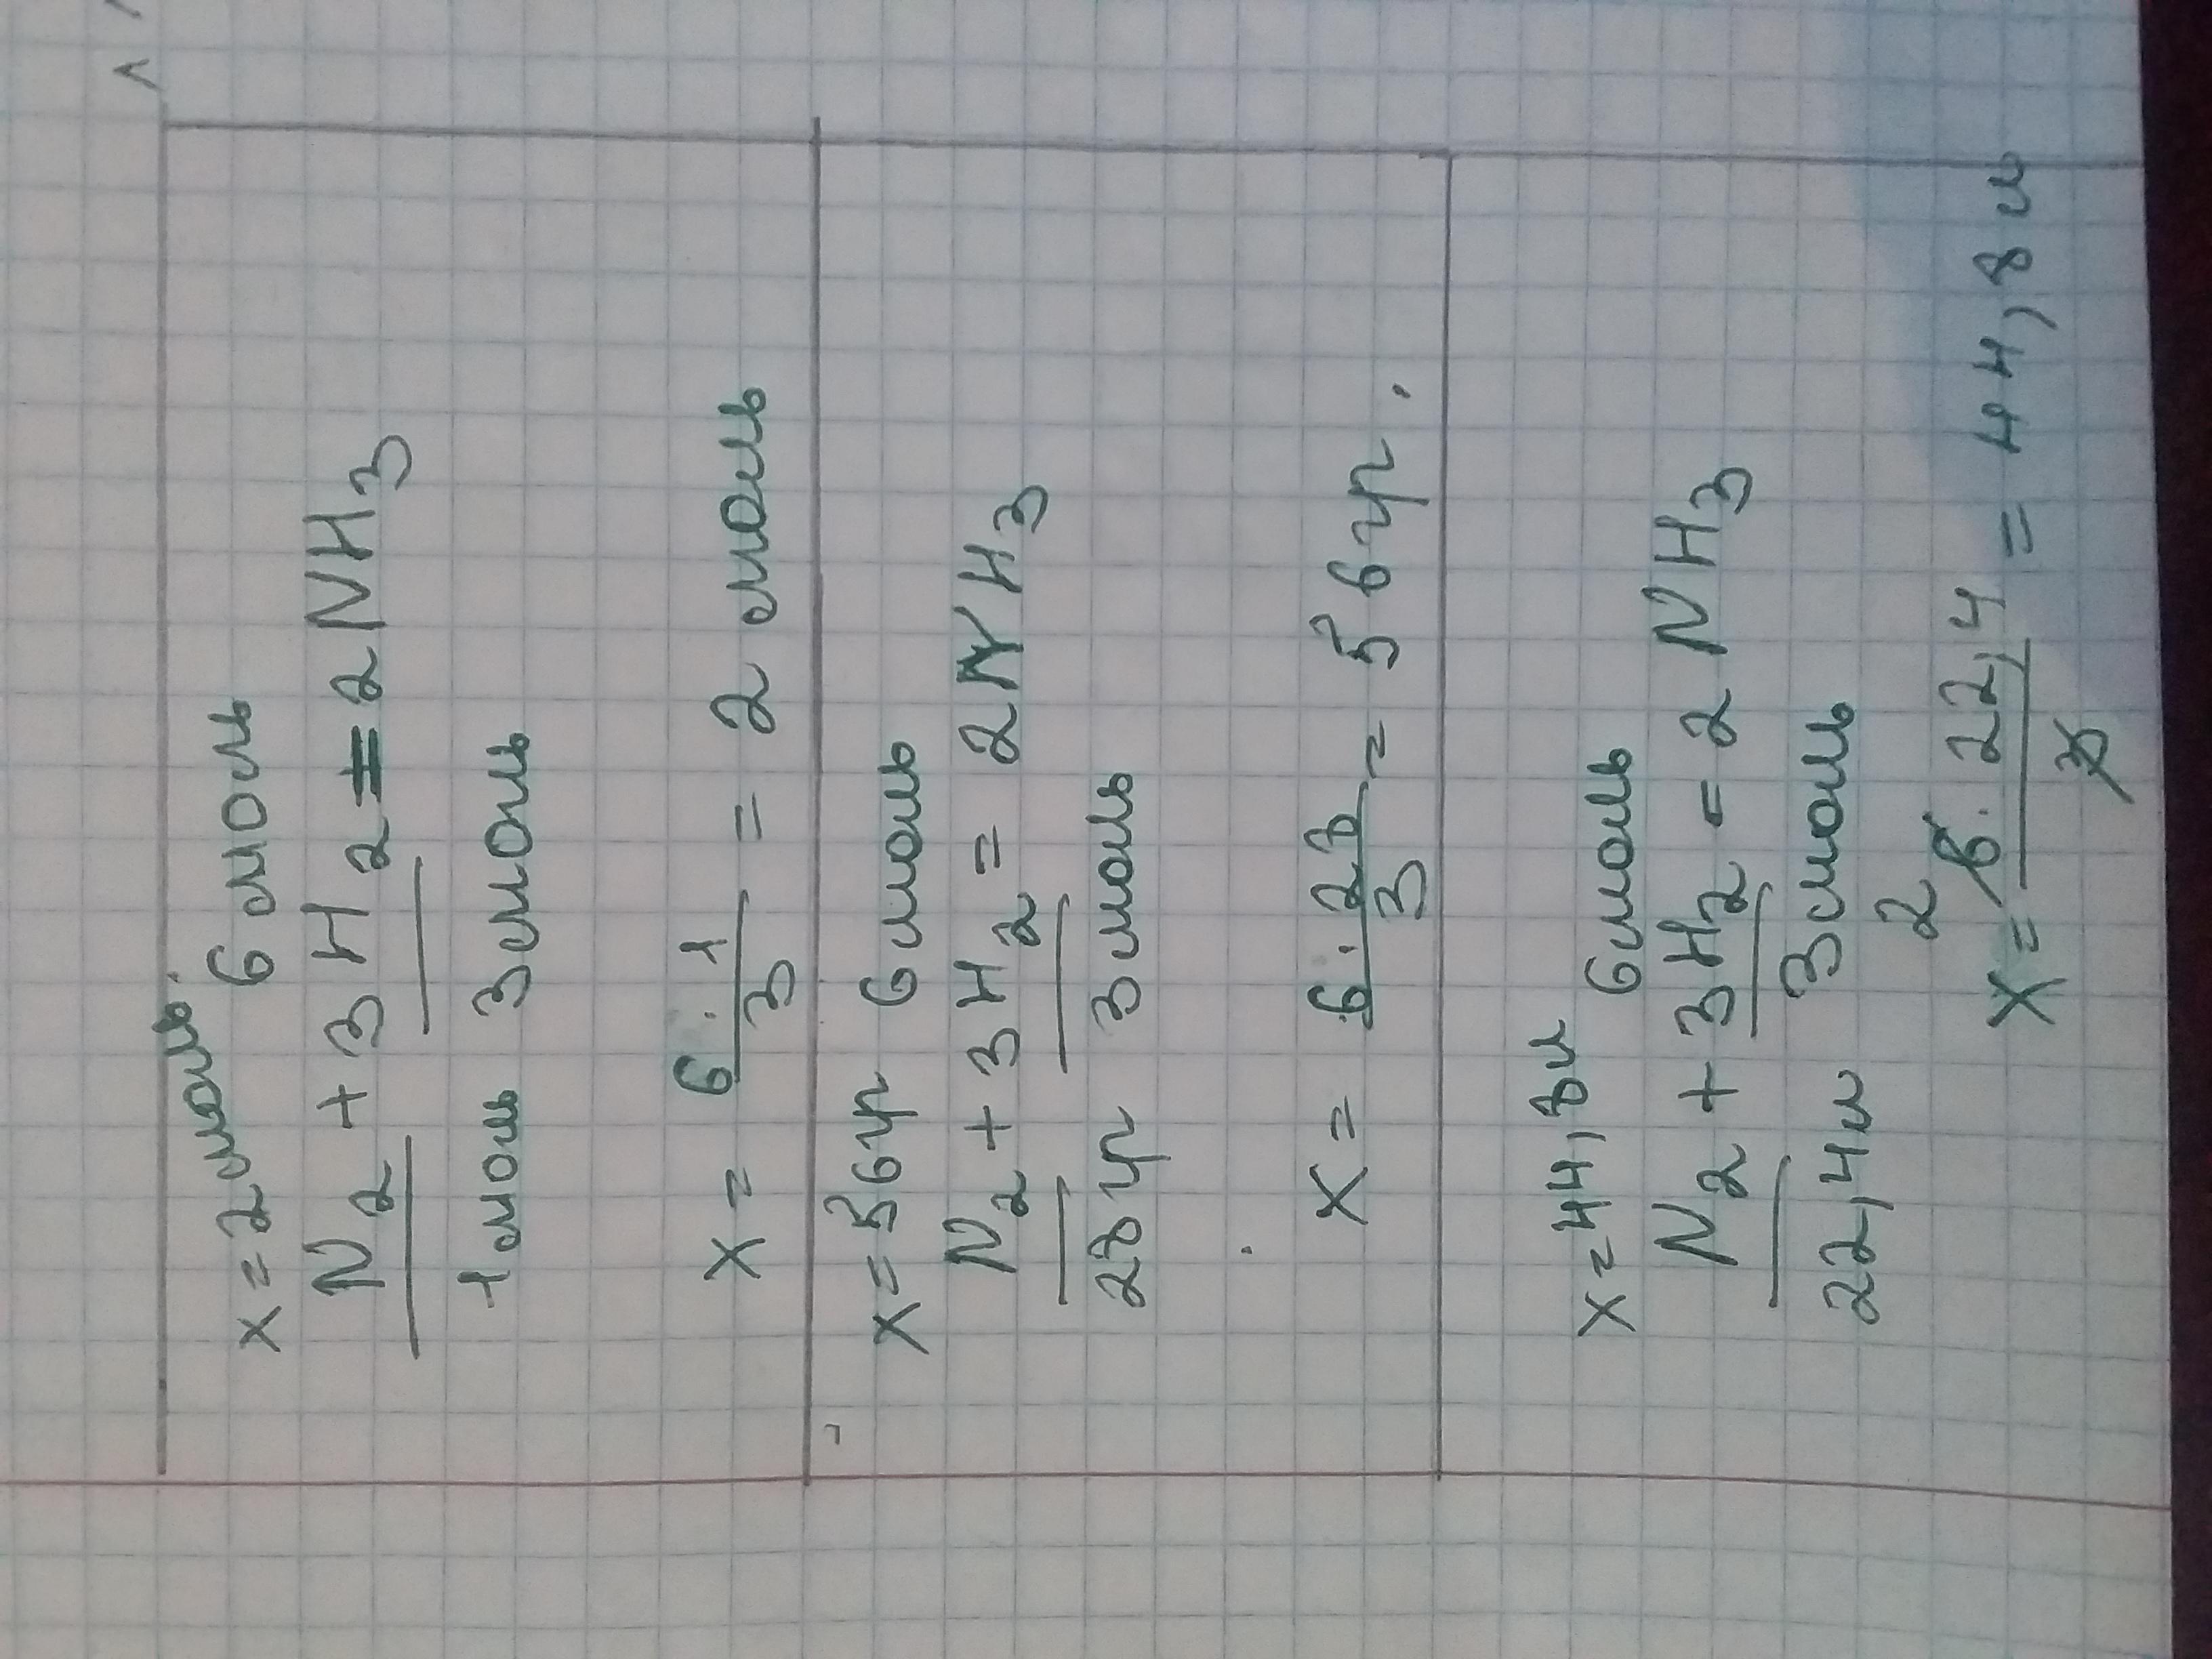 x=2моль. 6 моль
N2 + 3H2 = 2NH3
1моль 3моль
x = 6·1/3 = 2 моль
x=56гр 6моль
N2 + 3H2 = 2NH3
28гр 3моль
x = 6·28/3 = 56гр.
x=44,8л 6моль
N2 + 3H2 = 2NH3
22,4л 3моль
2
x= 6·22,4/3 = 44,8л